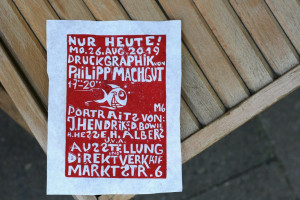 NUR HEUTE!
MO. 26. AUG. 2019
DRUCKGRAPHIK VON
PHILIPP MACHGUT
17-20
MG
PORTRAITS VON:
J. HENDRIX D. BOWIE
H. HESSE, H. ALBERS
U.V.A.
AUSSTELLUNG
DIREKTVERKAUF
MARKTSTR. 6